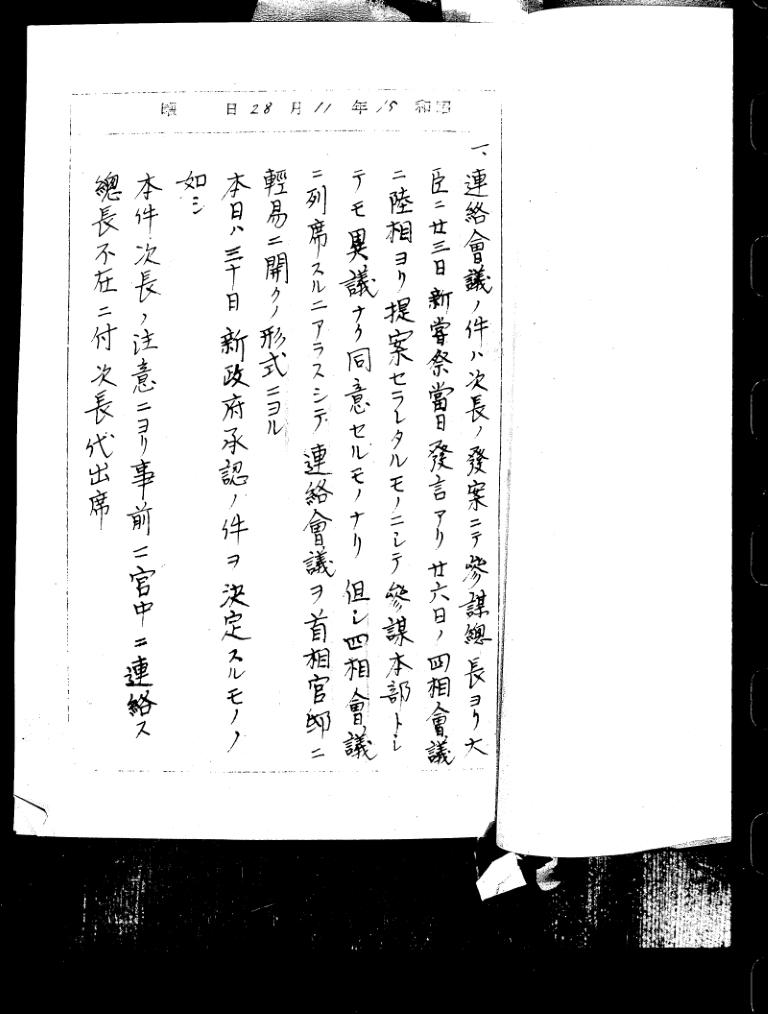 昭和15年11月28日 曜
一、連絡會議ノ件ハ次長ノ發案ニテ參謀總長ヨリ大
臣ニ廿三日新嘗祭當日發言アリ廿六日ノ四相會議
ニ陸相ヨリ提案セラレタルモノニシテ參謀本部トシ
テモ異議ナク同意セルモノナリ 但シ四相會議
ニ列席スルニアラスシテ連絡會議ヲ首相官邸ニ
輕易ニ開クノ形式ニヨル
本日ハ三十日新政府承認ノ件ヲ決定スルモノノ
如シ
本件次長ノ注意ニヨリ事前ニ宮中ニ連絡ス
總長不在ニ付次長代出席